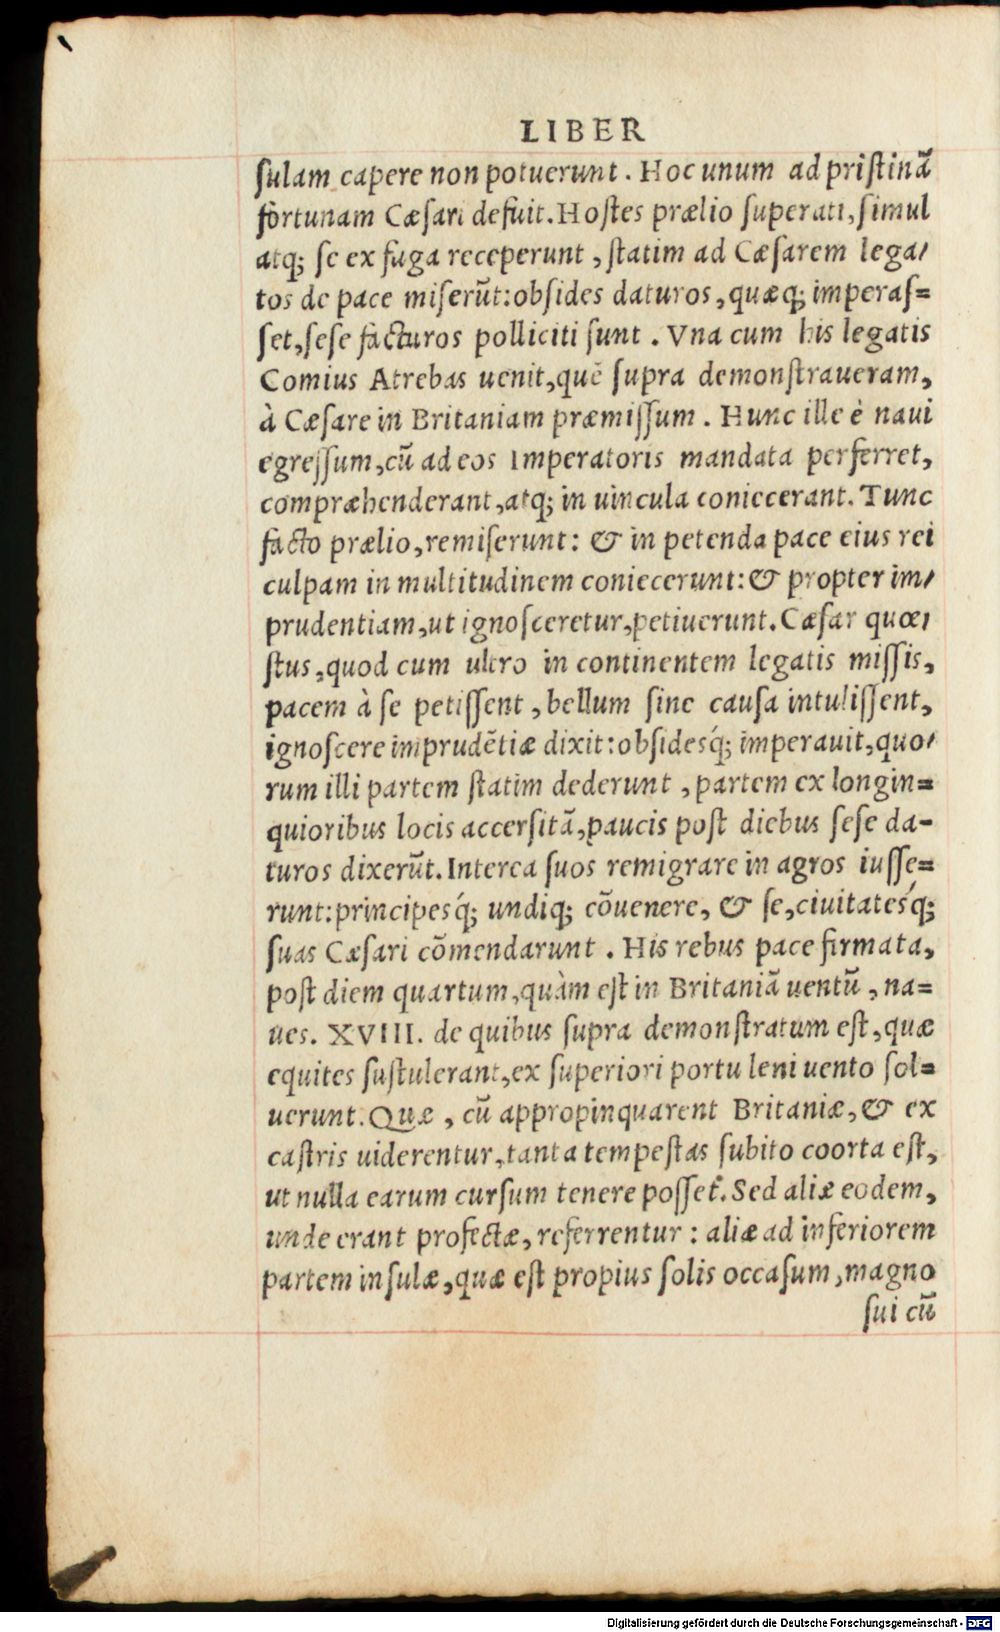 LIBER
ſulam capere non potuerunt. Hoc unum ad priſtinā
fortunam Cæſari defuit. Hoſtes prælio ſuperati, ſimul
atq; ſe ex fuga receperunt, ſtatim ad Cæſarem lega/
tos de pace miſerūt: obſides daturos, quæq; imperaſ=
ſet, ſeſe facturos polliciti ſunt. Vna cum his legatis
Comius Atrebas uenit, quē ſupra demonſtraueram,
à Cæſare in Britaniam præmiſſum. Hunc ille è naui
egreſſum, cū ad eos Imperatoris mandata perferret,
compræhenderant, atq; in uincula coniecerant. Tunc
facto prælio, remiſerunt: & in petenda pace eius rei
culpam in multitudinem coniecerunt: & propter im/
prudentiam, ut ignoſceretur, petiuerunt. Cæſar quœ/
ſtus, quod cum ultro in continentem legatis miſſis,
pacem à ſe petiſſent, bellum ſine cauſa intuliſſent,
ignoſcere imprudētiæ dixit: obſidesq́; imperauit, quo/
rum illi partem ſtatim dederunt, partem ex longin=
quioribus locis accerſitā, paucis poſt diebus ſeſe da-
turos dixerūt. Interea ſuos remigrare in agros iuſſe=
runt: principesq́; undiq; cōuenere, & ſe, ciuitatesq́;
ſuas Cæſari cōmendarunt. His rebus pace firmata,
poſt diem quartum, quàm eſt in Britaniā uentū, na=
ues. XVIII. de quibus ſupra demonſtratum eſt, quæ
equites ſuſtulerant, ex ſuperiori portu leni uento ſol=
uerunt. Quæ, cū appropinquarent Britaniæ, & ex
caſtris uiderentur, tanta tempeſtas ſubito coorta eſt,
ut nulla earum curſum tenere poſſet. Sed aliæ eodem,
unde erant profectæ, referrentur: aliæ ad inferiorem
partem inſulæ, quæ eſt propius ſolis occaſum, magno
ſui cū
Digitalisierung gefördert durch die Deutsche Forschungsgemeinschaft - DFG